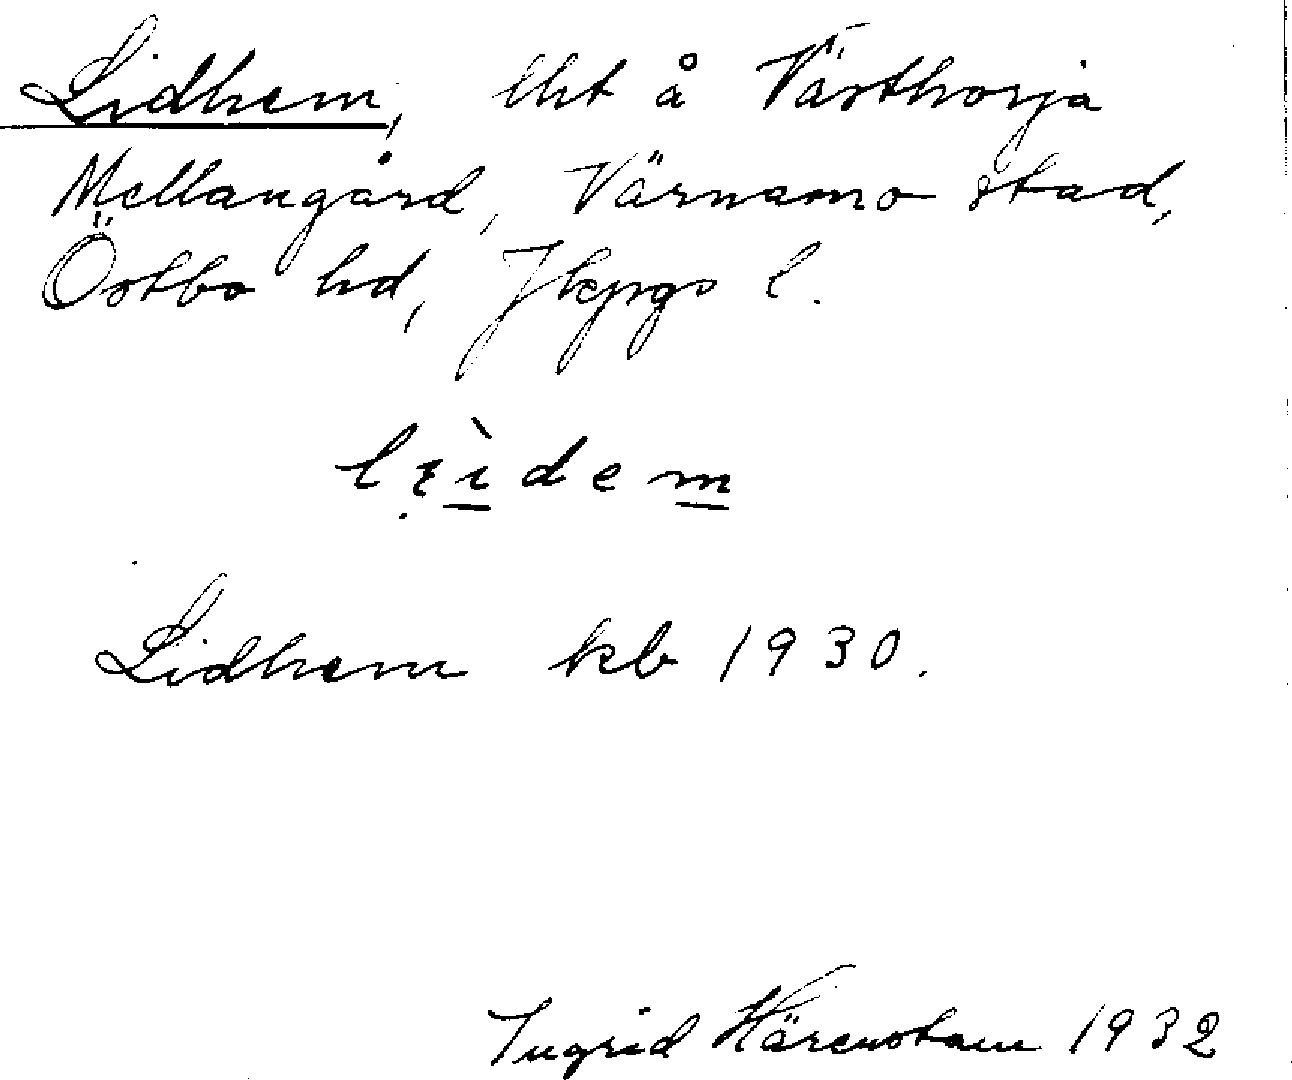 Lidhem, lht å Västhorja
Mellangård, Värnamo stad,
Östbo hd, Jkpgs l.
Lidhem kb 1930.
Ingrid Härenstam 1932